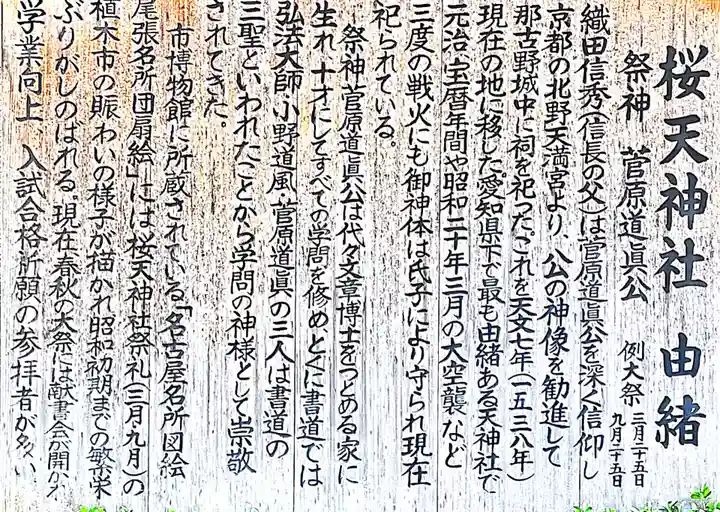 桜天神社 由緒
祭神 菅原道眞公
例大祭 三月二十五日
九月二十五日
織田信秀(信長の父)は菅原道眞公を深く信仰し
京都の北野天満宮より、公の神像を勧進して
那古野城中に祠を祀った。これを天文七年(一五三八年)
現在の地に移した。愛知県下で最も由緒ある天神社で
元治、宝暦年間や昭和二十年三月の大空襲など
三度の戦火にも御神体は氏子により守られ現在
祀られている。
祭神菅原道眞公は代々文章博士をつとめる家に
生れ、十才にしてすべての学問を修め、とくに書道では
弘法大師、小野道風、菅原道眞の三人は書道の
三聖といわれたことから学問の神様として崇敬
されてきた。
市博物館に所蔵されている「名古屋名所図絵
尾張名所団扇絵」には桜天神社祭礼(三月・九月)の
植木市の賑わいの様子が描かれ昭和初期までの繁栄
ぶりがしのばれる。現在春秋の大祭には献書会が開かれ
学業向上、入試合格祈願の参拝者が多い